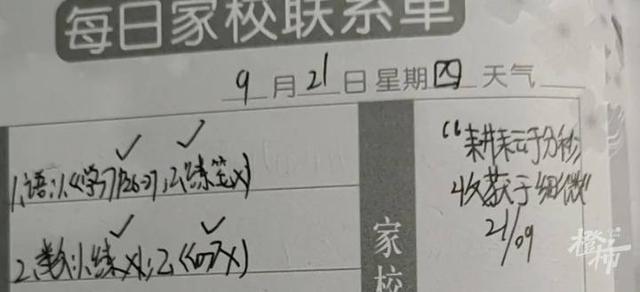 每日家校联系单
9月21日星期四天气
1.语:1.《学》P26-27;2.《练笔》
"耕耘于分秒,
收获于细微"
21/09
2.数:1.《练》;2.《
家校
橙柿